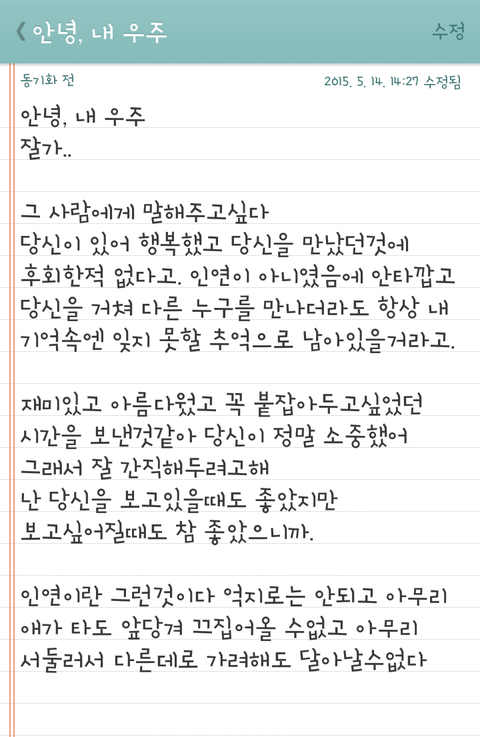 안녕, 내 우주
수정
동기화 전
2015. 5. 14. 14:27 수정됨
안녕, 내 우주
잘가..
그 사람에게 말해주고싶다
당신이 있어 행복했고 당신을 만났던것에
후회한적 없다고. 인연이 아니였음에 안타깝고
당신을 거쳐 다른 누구를 만나더라도 항상 내
기억속엔 잊지 못할 추억으로 남아있을거라고.
재미있고 아름다웠고 꼭 붙잡아두고싶었던
시간을 보낸것같아 당신이 정말 소중했어
그래서 잘 간직해두려고해
난 당신을 보고있을때도 좋았지만
보고싶어질때도 참 좋았으니까.
인연이란 그런것이다 억지로는 안되고 아무리
애가 타도 앞당겨 끄집어올 수없고 아무리
서둘러서 다른데로 가려해도 달아날수없다